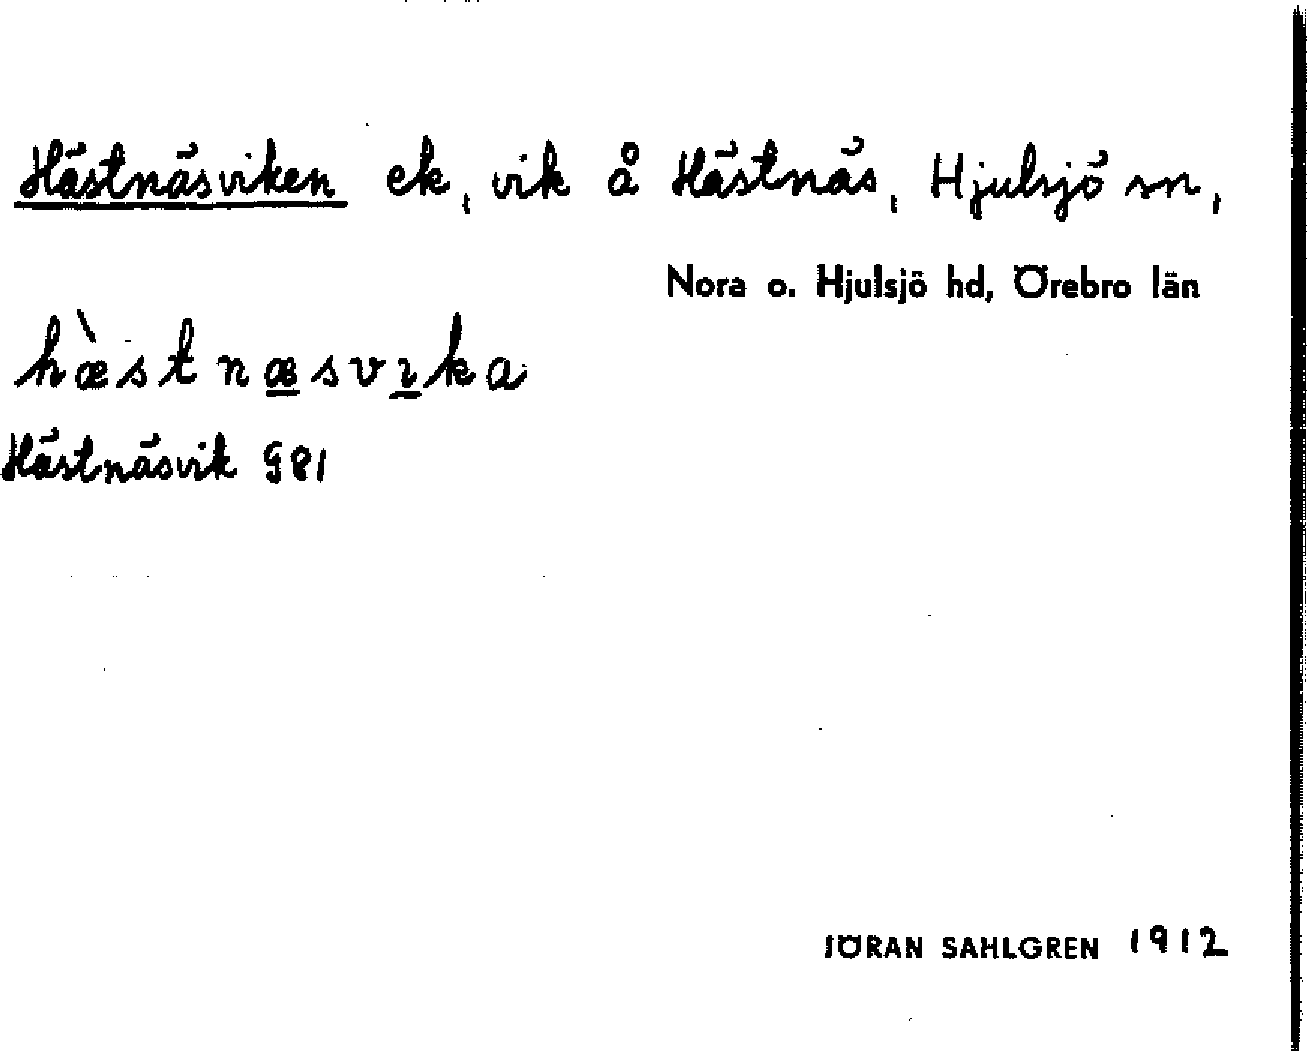 Hästnäsviken ek, vik å Hästnäs, Hjulsjö sn,
Nora o. Hjulsjö hd, Örebro län
hæ̀stnæsvıka
Hästnäsvik G81
JÖRAN SAHLGREN 1912